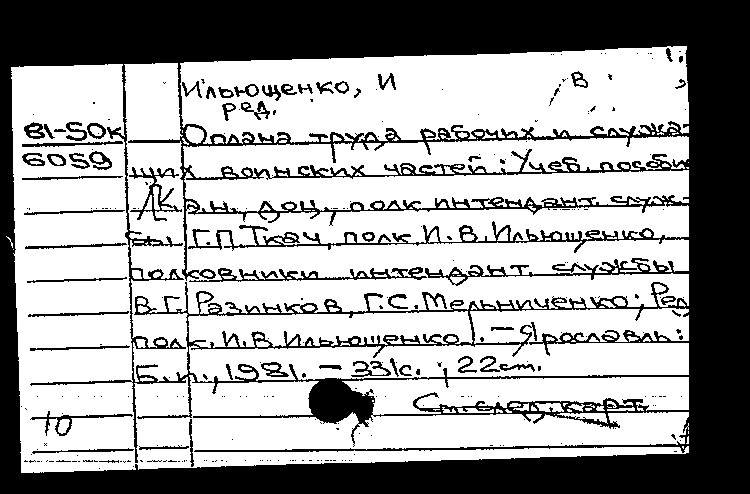 Ильющенко, И В
ред.
81-50к Оплана труда рабочих и служа-
6059 щих воинских частей: Учеб. пособие
/К.э.н., доц., полк. интендант. служ-
бы Г.П.Ткач, полк. И.В.Ильющенко,
полковники интендант. службы
В.Г. Разинков, Г.С.Мельниченко; Ред.
полк. И.В.Ильющенко/. — Ярославль:
Б.и., 1981. — 331с. ; 22см.
См. след. карт.
10